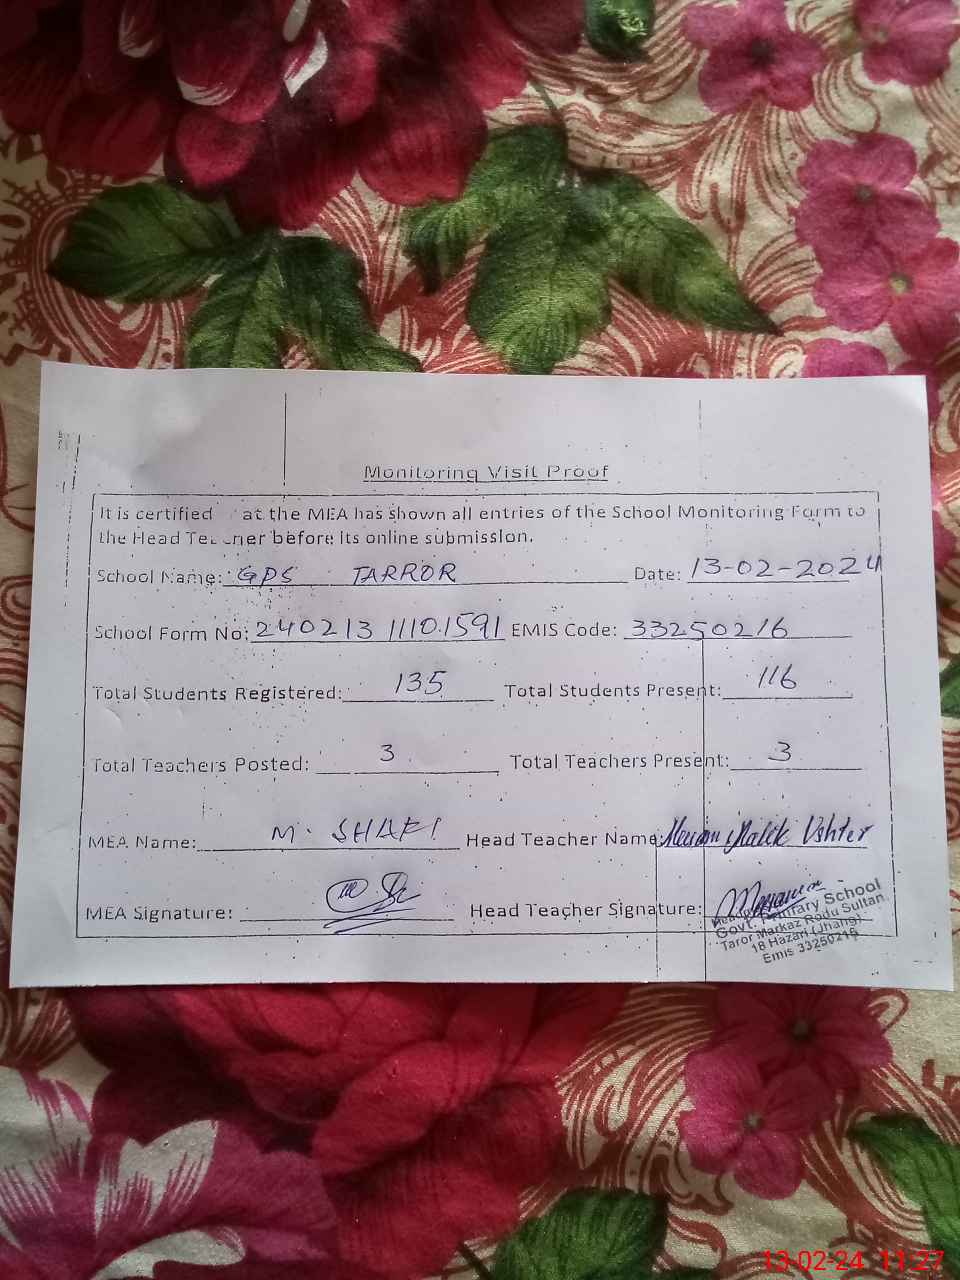 Monitoring Visit Proof
It is certified at the MEA has shown all entries of the School Monitoring Form to
the Head Teacher before its online submission.
School Name: GPS TARROR Date: 13-02-2024
School Form No: 240213 1110.1591 EMIS Code: 33250216
Total Students Registered: 135 Total Students Present: 116
Total Teachers Posted: 3 Total Teachers Present: 3
MEA Name: M. SHAFI Head Teacher Name: Malik
MEA Signature: Head Teacher Signature:
Govt. Primary School
Taror Markaz Rodu Sultan
18 Hazari (Jhang)
Emis 33250216
13-02-24 11:27